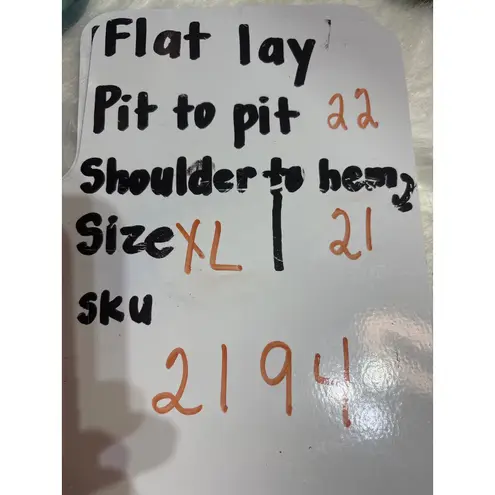 Flat lay
Pit to pit 22
Shoulder to hem
Size XL | 21
sku
2194